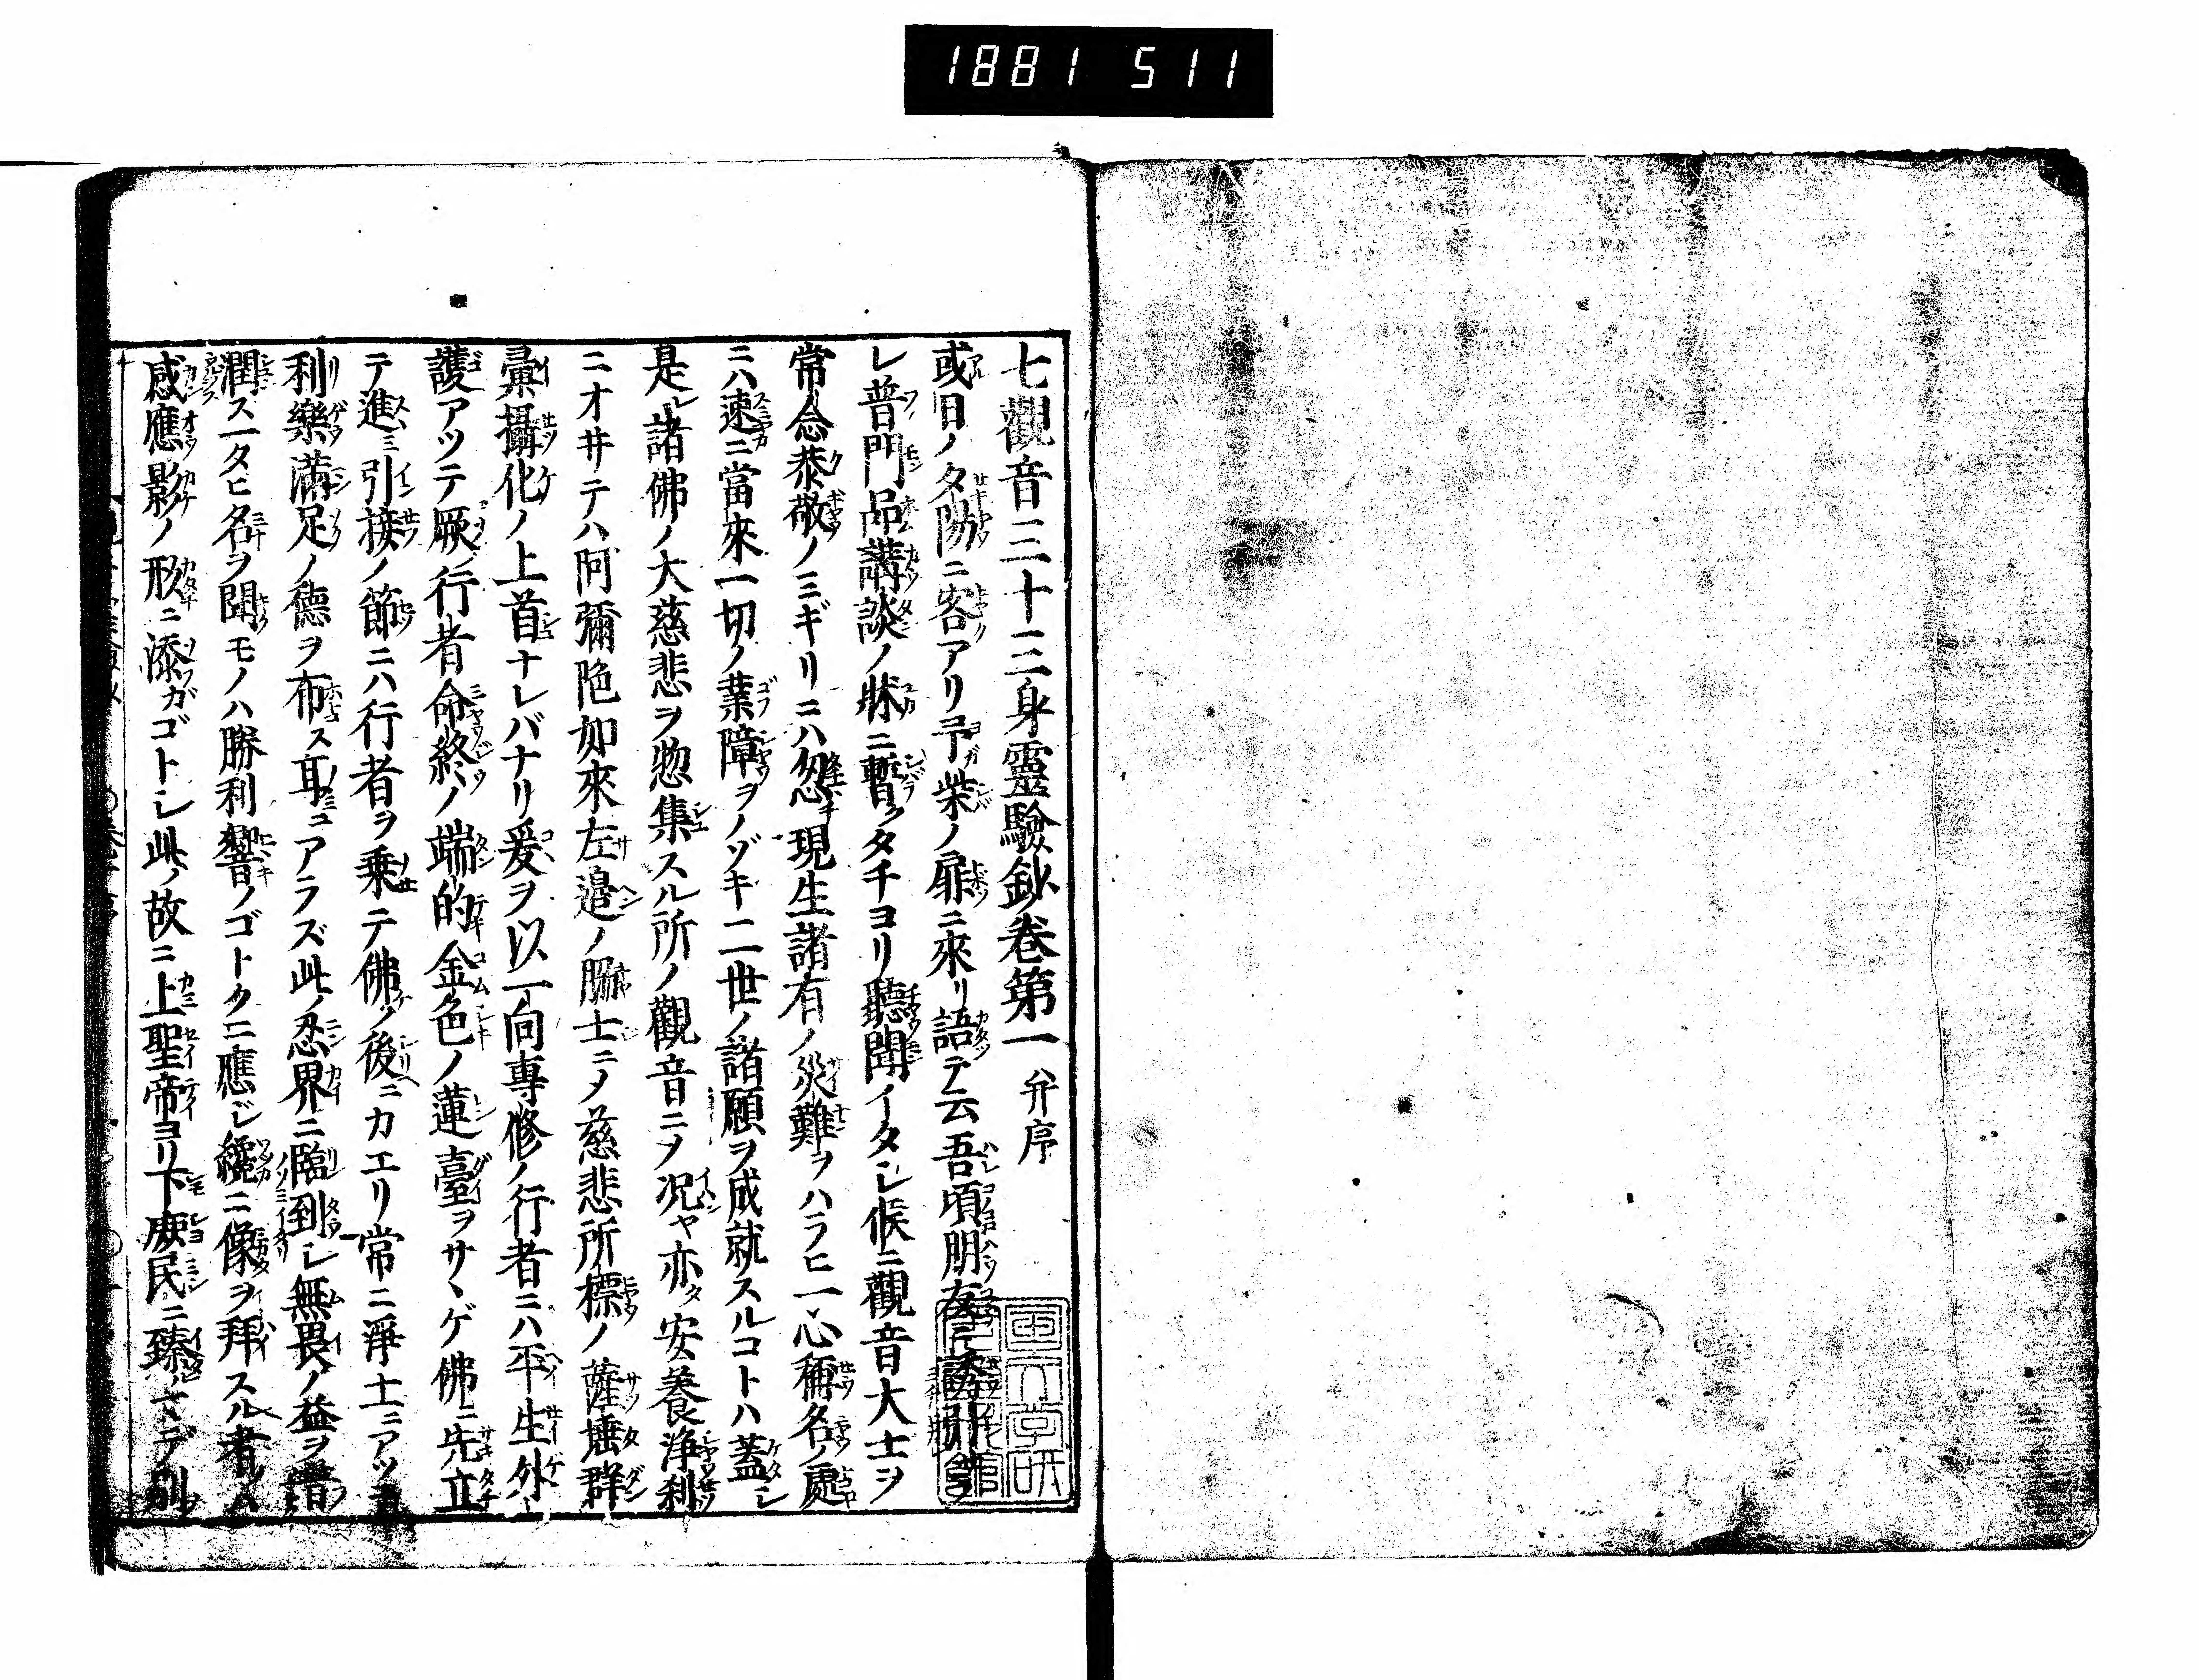 1881 511
七觀音三十三身靈驗鈔卷第一 并序
或日ノタ陽ニ客アリ予ガ柴ノ扉ニ來リ語テ云吾頃朋友ニ誘引
レ普門品講談ノ牀ニ暫クタチヨリ聽聞イタシ候ニ觀音大士ヲ
常ニ念恭敬ノミギリニハ忽チ現生諸有ノ災難ヲハラヒ一心稱名ノ處
ニハ速ニ當來一切ノ業障ヲノゾキ二世ノ諸願ヲ成就スルコトハ蓋シ
是レ諸佛ノ大慈悲ヲ惣集スル所ノ觀音ニヲ况ヤ亦タ安養淨刹
ニオヰテハ阿彌陁如來左邉ノ脇士ニメ慈悲所標ノ薩埵群
彙攝化ノ上首ナレバナリ爰ヲ以一向専修ノ行者ニハ平生外
護アツテ厥ノ行者命終ノ端的金色ノ蓮臺ヲサヽゲ佛ニ先立
テ進ミ引接ノ節ニハ行者ヲ乗テ佛ノ後ニカエリ常ニ淨土ニアツ
利樂滿足ノ德ヲ布ス耳ニアラズ此ノ忍界ニ臨到シ無畏ノ益ヲ譜
潤ス一タヒ名ヲ聞モノハ勝利響ノゴトクニ應ジ纔ニ像ヲ拜スル者ノハ
感應影ノ形ニ添ガゴトシ此ノ故ニ上聖帝ヨリ下庻民ニ臻マデ別